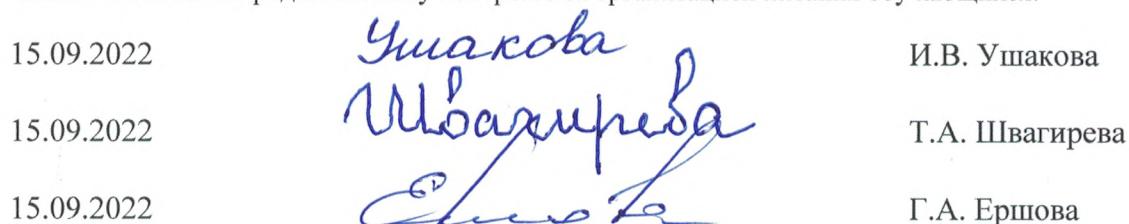 15.09.2022 Ушакова И.В. Ушакова
15.09.2022 Швагирева Т.А. Швагирева
15.09.2022 Ершова Г.А. Ершова